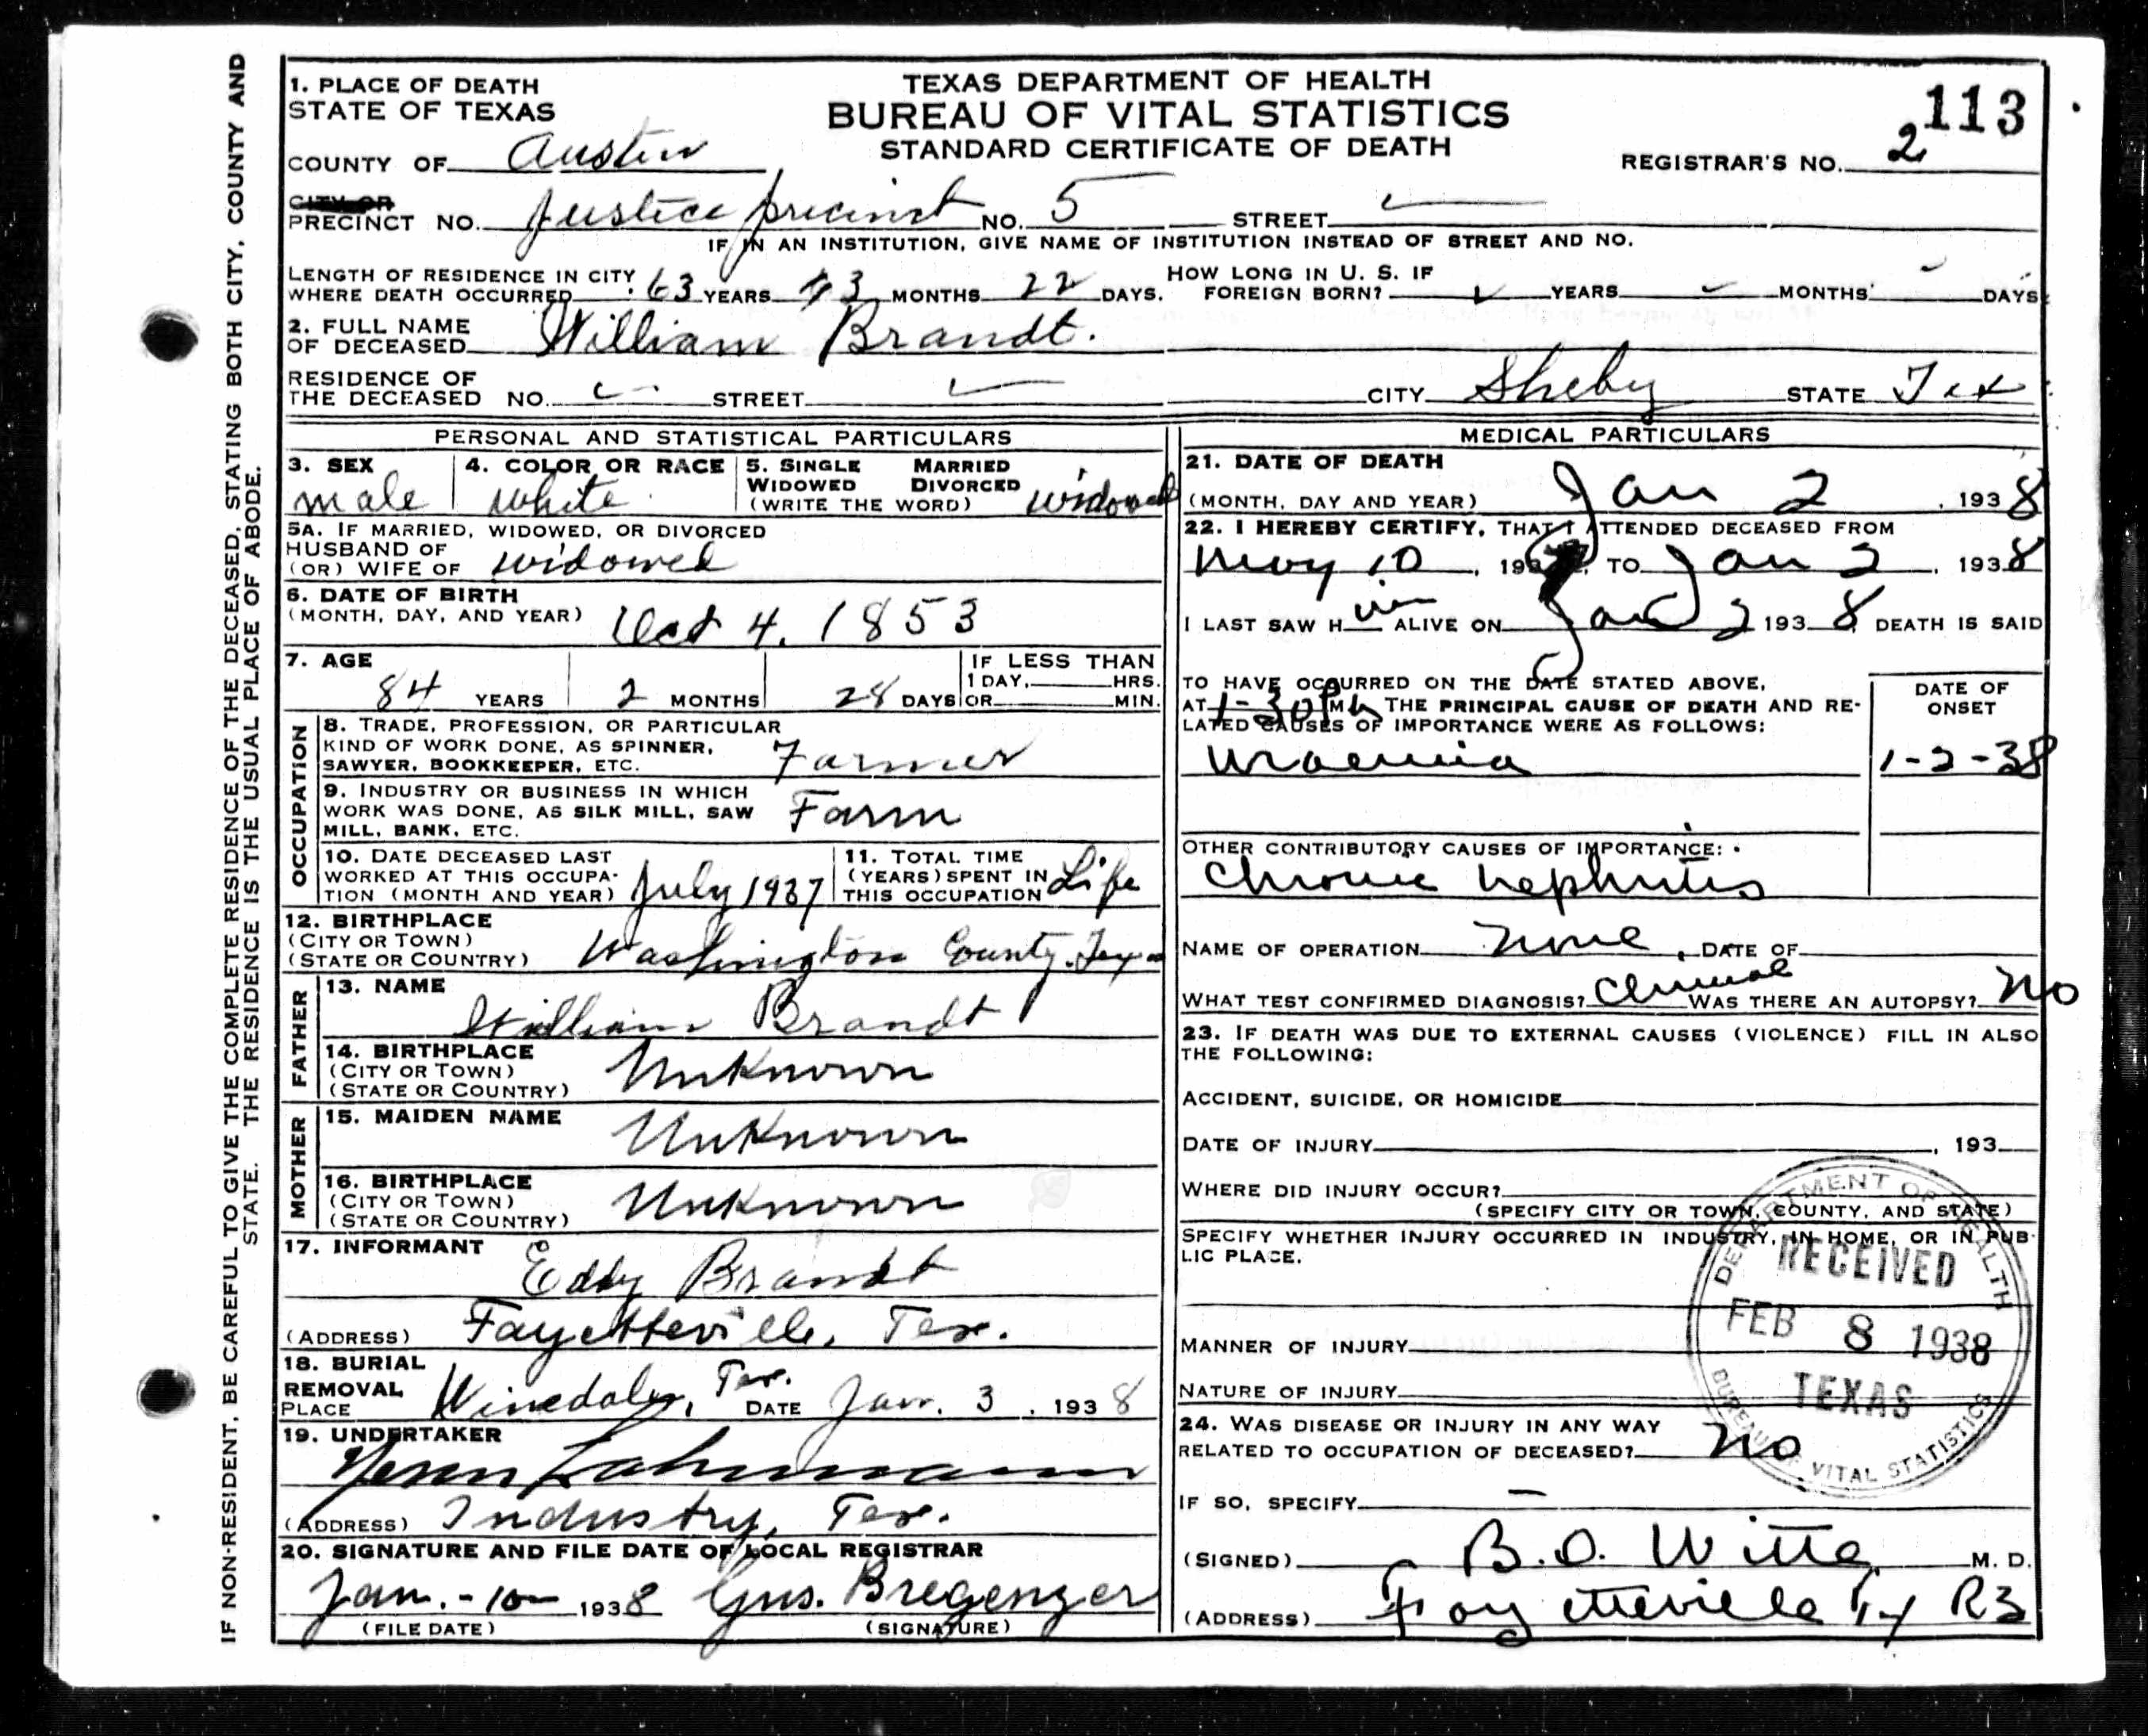 IF NON-RESIDENT, BE CAREFUL TO GIVE THE COMPLETE RESIDENCE OF THE DECEASED, STATING BOTH CITY, COUNTY AND
STATE. THE RESIDENCE IS THE USUAL PLACE OF ABODE.
1. PLACE OF DEATH
STATE OF TEXAS
TEXAS DEPARTMENT OF HEALTH
BUREAU OF VITAL STATISTICS
STANDARD CERTIFICATE OF DEATH
113
REGISTRAR'S NO. 2
COUNTY OF Austin
CITY OR
PRECINCT NO. Justice precinct NO. 5 STREET
IF IN AN INSTITUTION, GIVE NAME OF INSTITUTION INSTEAD OF STREET AND NO.
LENGTH OF RESIDENCE IN CITY
WHERE DEATH OCCURRED 63 YEARS 3 MONTHS 22 DAYS.
HOW LONG IN U. S. IF
FOREIGN BORN? YEARS MONTHS DAYS
2. FULL NAME
OF DECEASED William Brandt.
RESIDENCE OF
THE DECEASED NO. STREET CITY Shelby STATE Tex
PERSONAL AND STATISTICAL PARTICULARS
3. SEX
male
4. COLOR OR RACE
white
5. SINGLE MARRIED
WIDOWED DIVORCED
(WRITE THE WORD) widowed
5A. IF MARRIED, WIDOWED, OR DIVORCED
HUSBAND OF
(OR) WIFE OF widowed
6. DATE OF BIRTH
(MONTH, DAY, AND YEAR) Oct 4. 1853
7. AGE
84 YEARS 2 MONTHS 28 DAYS
IF LESS THAN
1 DAY, HRS.
OR MIN.
OCCUPATION
8. TRADE, PROFESSION, OR PARTICULAR
KIND OF WORK DONE, AS SPINNER,
SAWYER, BOOKKEEPER, ETC. Farmer
9. INDUSTRY OR BUSINESS IN WHICH
WORK WAS DONE, AS SILK MILL, SAW
MILL, BANK, ETC. Farm
10. DATE DECEASED LAST
WORKED AT THIS OCCUPA-
TION (MONTH AND YEAR) July 1937
11. TOTAL TIME
(YEARS) SPENT IN
THIS OCCUPATION Life
12. BIRTHPLACE
(CITY OR TOWN)
(STATE OR COUNTRY) Washington County. Texas
FATHER
13. NAME
William Brandt
14. BIRTHPLACE
(CITY OR TOWN)
(STATE OR COUNTRY) Unknown
MOTHER
15. MAIDEN NAME
Unknown
16. BIRTHPLACE
(CITY OR TOWN)
(STATE OR COUNTRY) Unknown
17. INFORMANT
Eddy Brandt
(ADDRESS) Fayetteville, Tex.
18. BURIAL
REMOVAL
PLACE Winedale, Tex. DATE Jan. 3, 1938
19. UNDERTAKER
Lahrmann
(ADDRESS) Industry, Tex.
20. SIGNATURE AND FILE DATE OF LOCAL REGISTRAR
Jan. - 10 - 1938 Gus. Bregenzer
(FILE DATE) (SIGNATURE)
MEDICAL PARTICULARS
21. DATE OF DEATH
(MONTH, DAY AND YEAR) Jan 2, 1938
22. I HEREBY CERTIFY, THAT I ATTENDED DECEASED FROM
May 10, 193 TO Jan 2, 1938
I LAST SAW HIM ALIVE ON Jan 2 1938 DEATH IS SAID
TO HAVE OCCURRED ON THE DATE STATED ABOVE,
AT 1-30 PM THE PRINCIPAL CAUSE OF DEATH AND RE-
LATED CAUSES OF IMPORTANCE WERE AS FOLLOWS:
DATE OF
ONSET
Uraemia 1-2-38
OTHER CONTRIBUTORY CAUSES OF IMPORTANCE:
Chronic nephritis
NAME OF OPERATION none, DATE OF
WHAT TEST CONFIRMED DIAGNOSIS? Clinical WAS THERE AN AUTOPSY? No
23. IF DEATH WAS DUE TO EXTERNAL CAUSES (VIOLENCE) FILL IN ALSO
THE FOLLOWING:
ACCIDENT, SUICIDE, OR HOMICIDE
DATE OF INJURY , 193
WHERE DID INJURY OCCUR?
(SPECIFY CITY OR TOWN, COUNTY, AND STATE)
SPECIFY WHETHER INJURY OCCURRED IN INDUSTRY, IN HOME, OR IN PUB-
LIC PLACE.
MANNER OF INJURY
NATURE OF INJURY
DEPARTMENT OF HEALTH
RECEIVED
FEB 8 1938
TEXAS
BUREAU OF VITAL STATISTICS
24. WAS DISEASE OR INJURY IN ANY WAY
RELATED TO OCCUPATION OF DECEASED? No
IF SO, SPECIFY –
(SIGNED) B. O. Witte M. D.
(ADDRESS) Fayetteville Tx R3